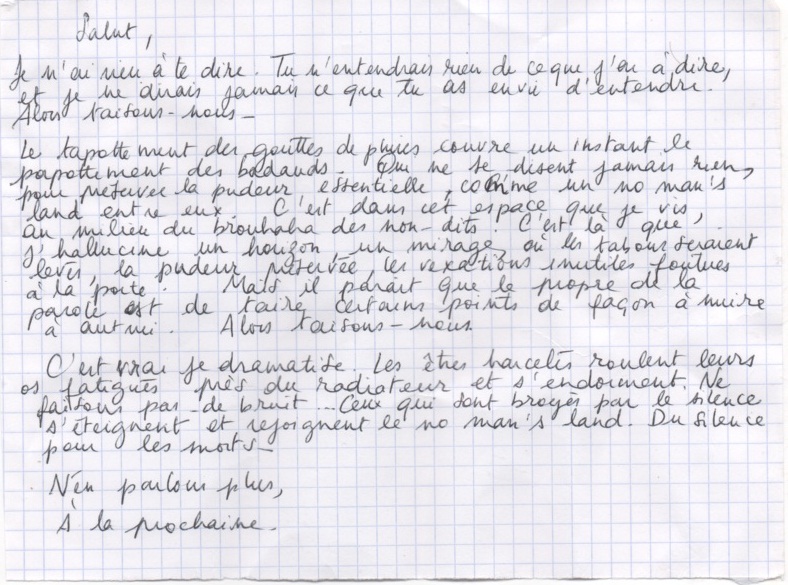 Salut,
Je n'ai rien à te dire. Tu n'entendrais rien de ce que j'ai à dire,
et je ne dirais jamais ce que tu as envie d'entendre.
Alors taisons-nous_
Le tapottement des gouttes de pluies couvre un instant le
papottement des badauds. Qui ne se disent jamais rien,
pour préserver la pudeur essentielle, comme un no man's
land entre eux. C'est dans cet espace que je vis,
au milieu du brouhaha des non-dits. C'est là que
j'hallucine un horizon, un mirage, où les tabous seraient
levés, la pudeur préservée, les vexations inutiles foutues
à la porte. Mais il paraît que le propre de la
parole est de taire certains points de façon à nuire
à autrui. Alors taisons-nous
C'est vrai je dramatise. Les êtres harcelés roulent leurs
os fatigués près du radiateur et s'endorment. Ne
faisons pas de bruit... Ceux qui sont broyés par le silence
s'éteignent et rejoignent le no man's land. Du silence
pour les morts_
N'en parlons plus,
À la prochaine.